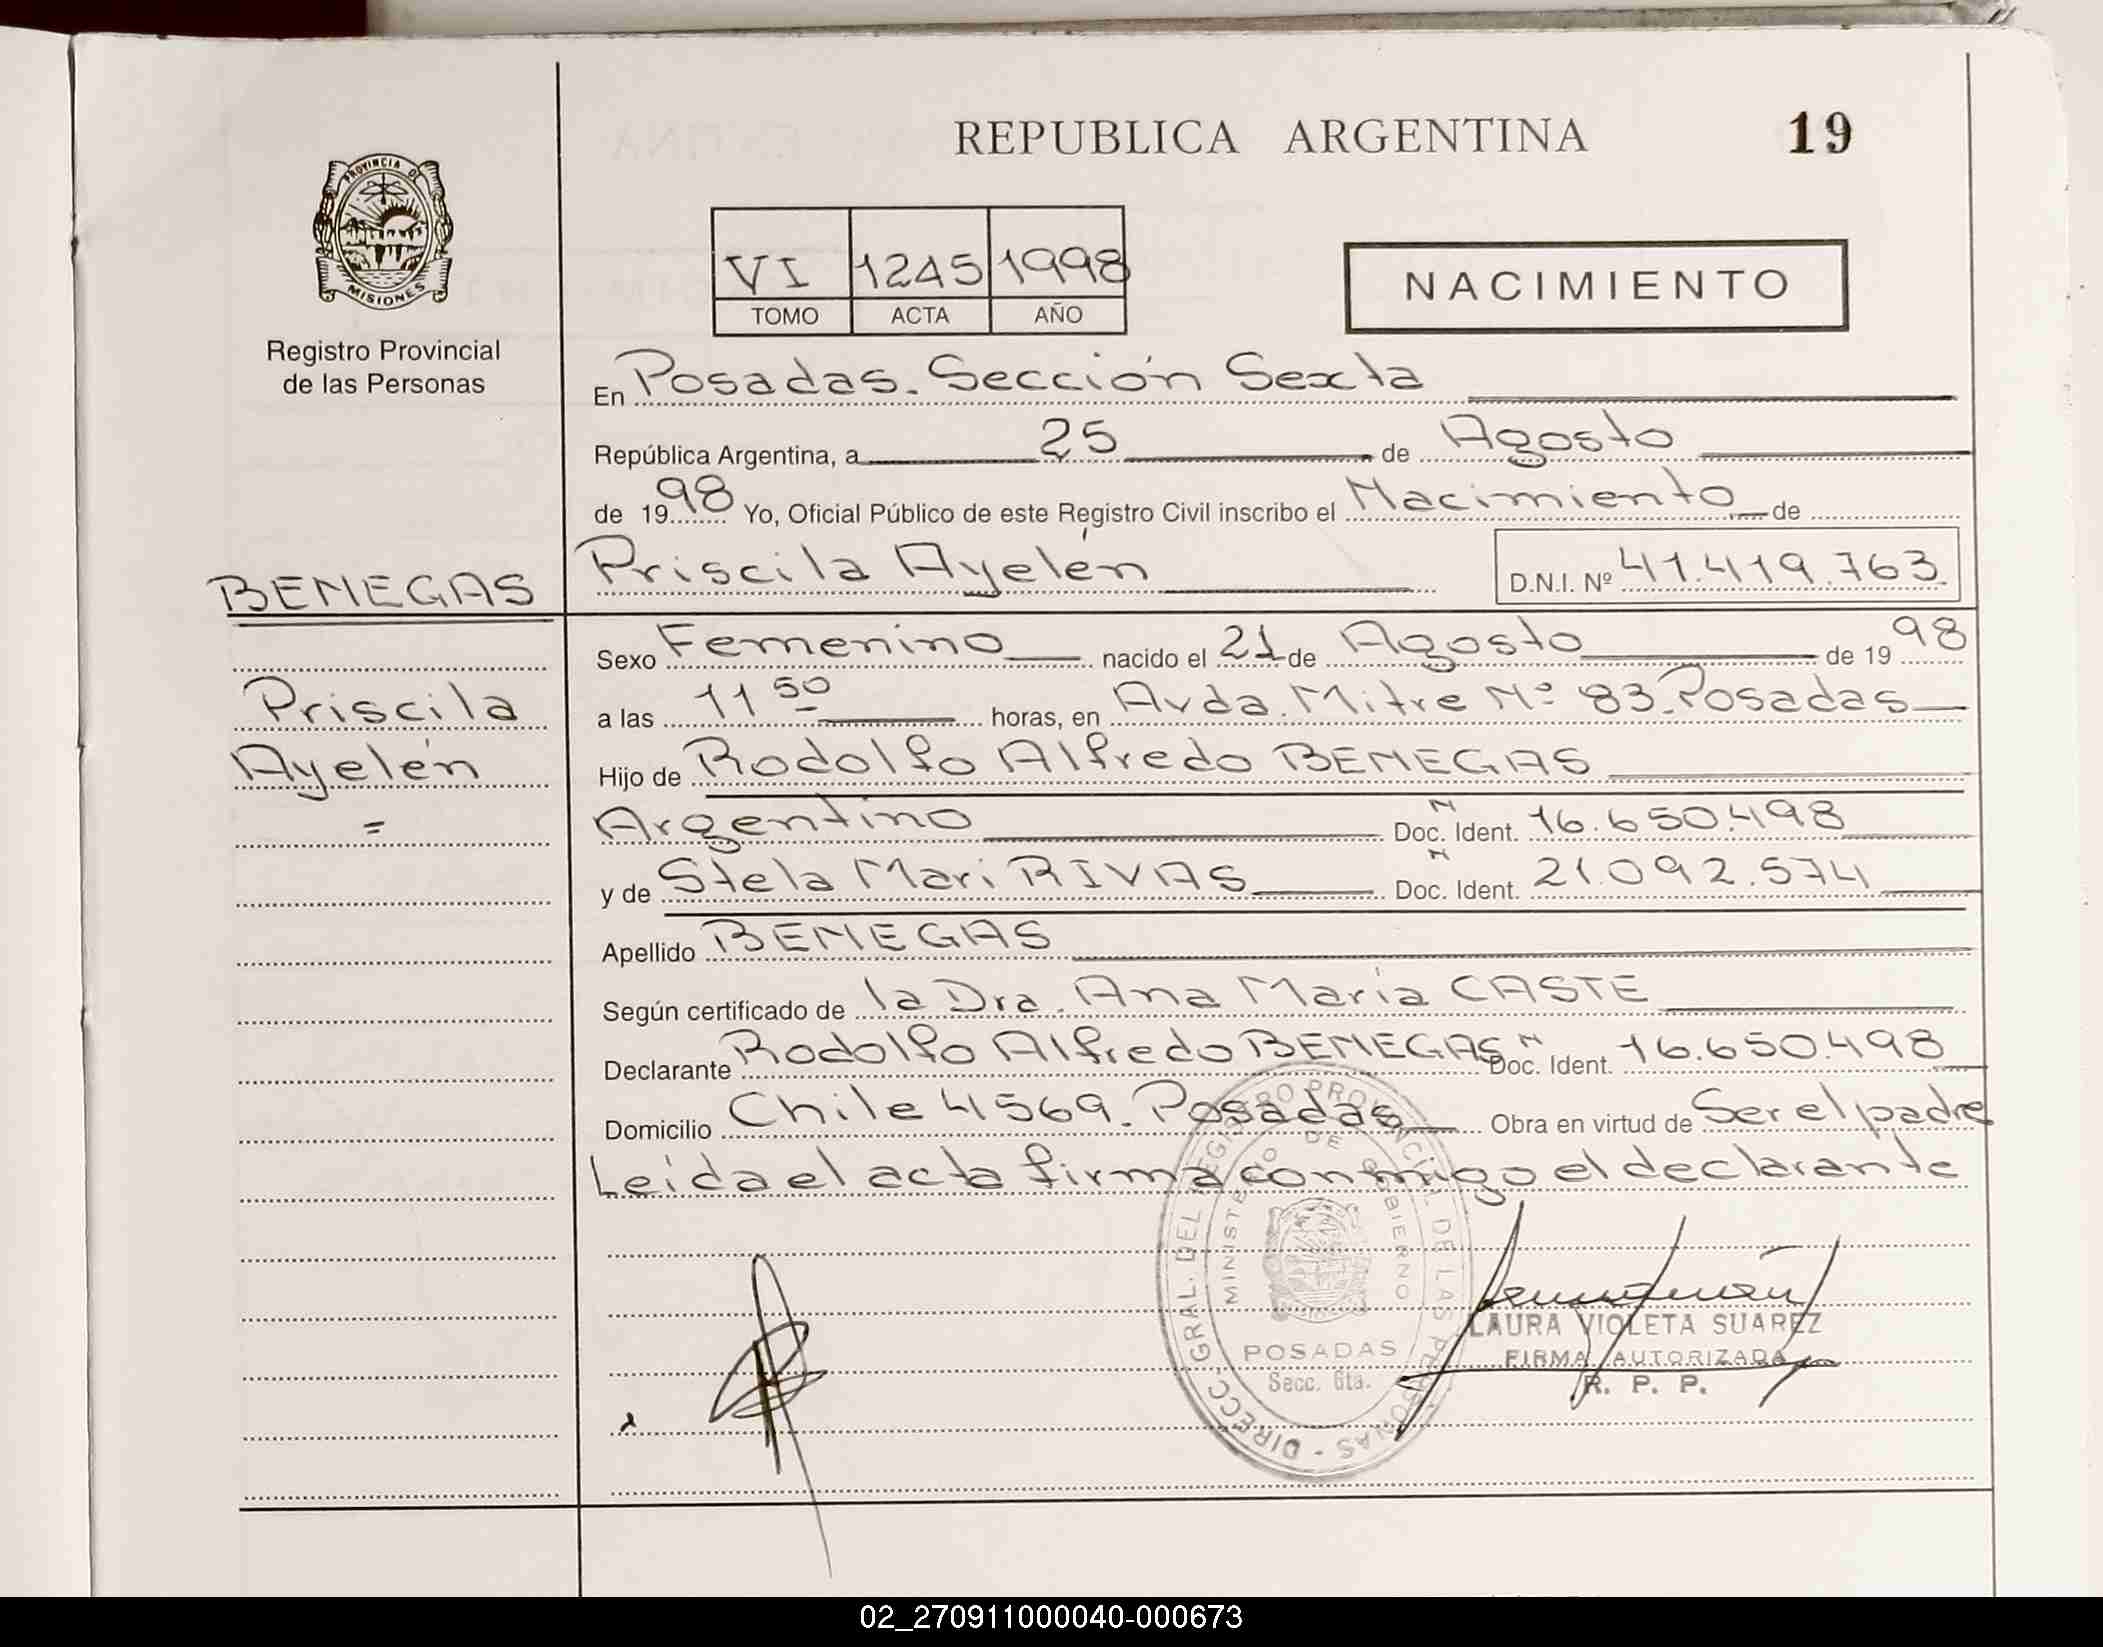 REPUBLICA ARGENTINA
19
PROVINCIA DE
MISIONES
Registro Provincial
de las Personas
VI 1245 1998
TOMO ACTA AÑO
NACIMIENTO
En Posadas. Sección Sexta
República Argentina, a 25 de Agosto
de 1998 Yo, Oficial Público de este Registro Civil inscribo el Nacimiento de
Priscila Ayelén D.N.I. Nº 41.419.763
BENEGAS
Priscila
Ayelén
=
Sexo Femenino nacido el 21 de Agosto de 1998
a las 11 50 horas, en Avda. Mitre Nº 83. Posadas
Hijo de Rodolfo Alfredo BENEGAS
Argentino Doc. N Ident. 16.650.498
y de Stela Mari RIVAS Doc. N Ident. 21.092.574
Apellido BENEGAS
Según certificado de la Dra. Ana María CASTE
Declarante Rodolfo Alfredo BENEGAS N Doc. Ident. 16.650.498
Domicilio Chile 4569. Posadas Obra en virtud de Ser el padre
Leída el acta firma conmigo el declarante
DIRECC. GRAL. DEL REGISTRO PROVINCIAL DE LAS PERSONAS
MINISTERIO DE GOBIERNO
POSADAS
Secc. 6ta.
LAURA VIOLETA SUAREZ
FIRMA AUTORIZADA
R. P. P.
02_270911000040-000673